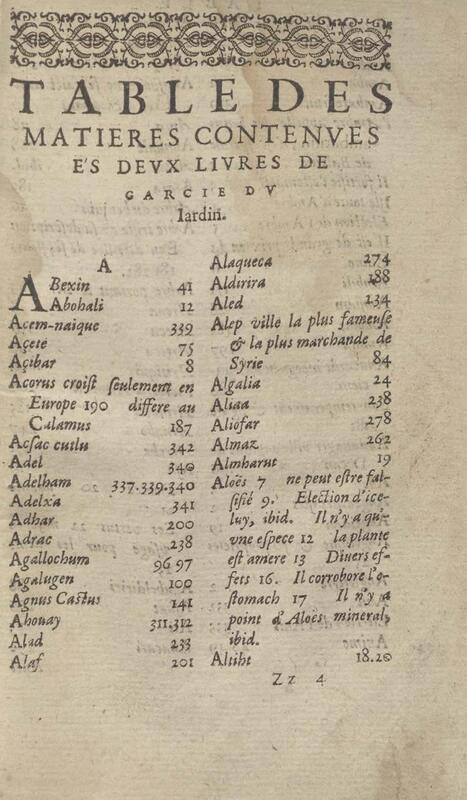 TABLE DES
MATIERES CONTENVES
E'S DEVX LIVRES DE
GARCIE DV
Iardin.
A
ABexin 41
Abohali 12
Acem-naique 339
Açete 75
Açibar 8
Acorus croist seulement en
Europe 190 differe au
Calamus 187
Acsac cutlu 342
Adel 340
Adelham 337.339.340
Adelxa 341
Adhar 200
Adrac 238
Agallochum 96 97
Agalugen 100
Agnus Castus 141
Ahouay 311.312
Alad 233
Alaf 201
Alaqueca 274
Aldirira 188
Aled 134
Alep ville la plus fameuse
& la plus marchande de
Syrie 84
Algalia 24
Aliaa 238
Aliofar 278
Almaz 262
Almharut 19
Aloës 7 ne peut estre fal-
sifié 9. Election d'ice-
luy, ibid. Il n'y a qu'-
vne espece 12 la plante
est amere 13 Diuers ef-
fets 16. Il corrobore l'o-
stomach 17 Il n'y a
point d'Aloës mineral,
ibid.
Altiht 18.20
Zz 4